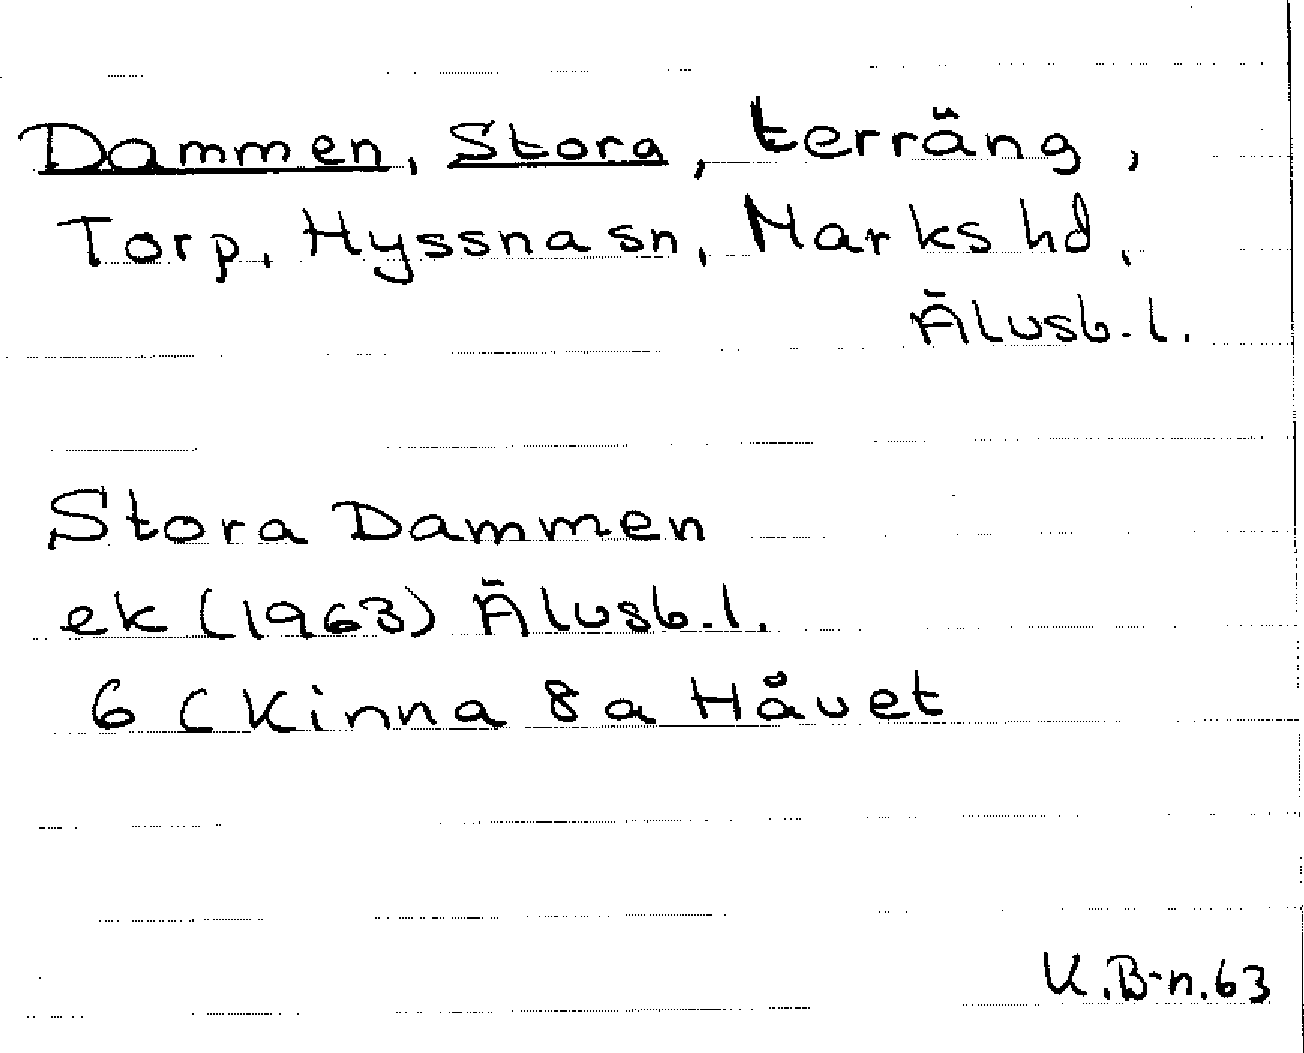 Dammen, Stora, terräng,
Torp, Hyssna sn, Marks hd,
Älvsb. l.
Stora Dammen
ek (1963) Älvsb. l.
6 C Kinna 8 a Håvet
K.B-n.63